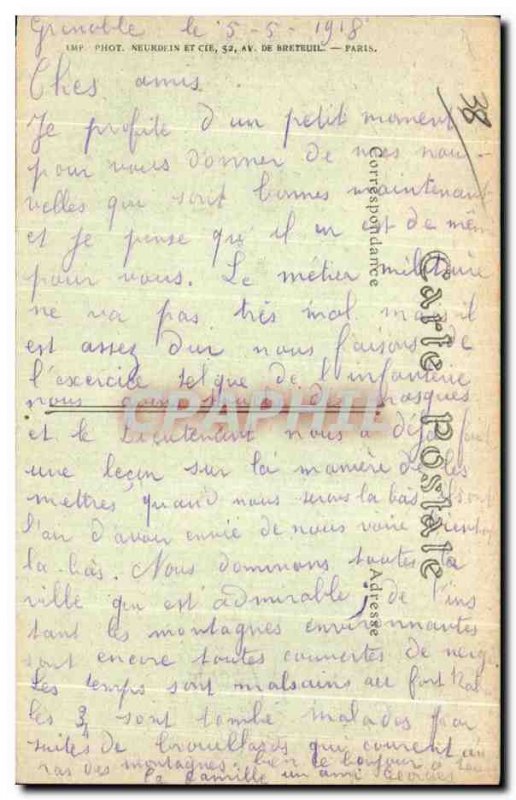 Grenoble le 5-5-1918
IMP. PHOT. NEURDEIN ET CIE, 52, AV. DE BRETEUIL. — PARIS.
38
Chers amis
Je profite d'un petit moment
pour vous donner de mes nou-
velles qui sont bonnes maintenant
et je pense qu'il en est de mêm
pour vous. Le métier militaire
ne va pas très mal mais il
est assez dur nous faisons de
l'exercice tel que de l'infanterie
nous masques
et le lieutenant nous a déjà fait
une leçon sur la manière de les
mettres quand nous serons la bas
l'air d'avoir envie de nous voire
la-bàs. Nous dominons toutes la
ville qui est admirable de l'ins
tant les montagnes environnantes
sont encore toutes couvertes de neige
Les temps sont malsains au fort
les 3/4 sont tombé malades
suites de brouillards qui courent au
ras des montagnes. bien le bonjour à
la famille un ami Georges
Correspondance
Carte Postale
Adresse
CPAPHIL